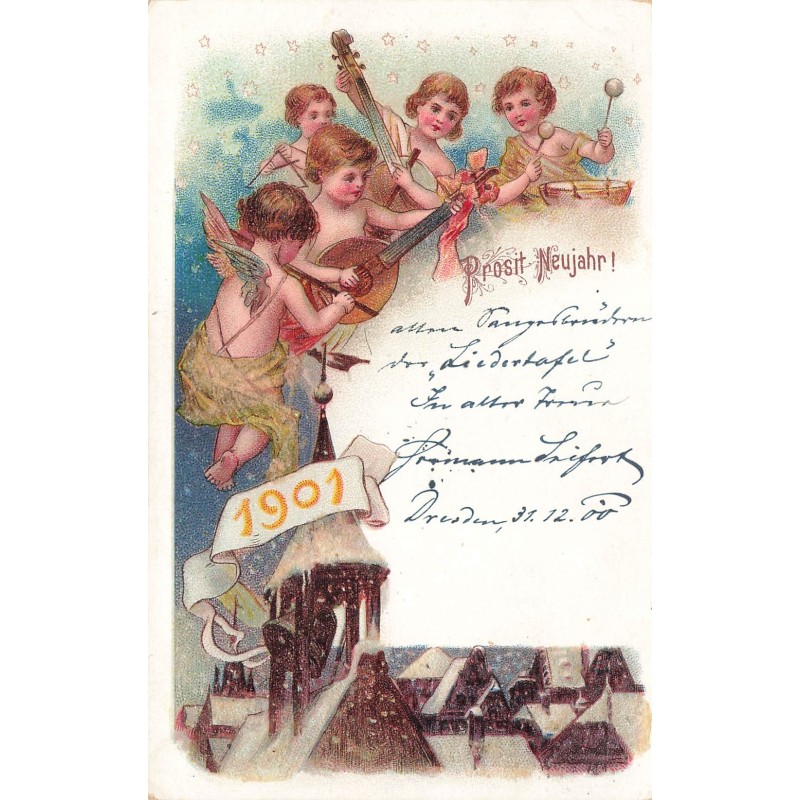 Prosit Neujahr!
allen Sangesbrüdern
der „Liedertafel"
In alter Treue
Hermann Seifert
Dresden, 31.12.00
1901